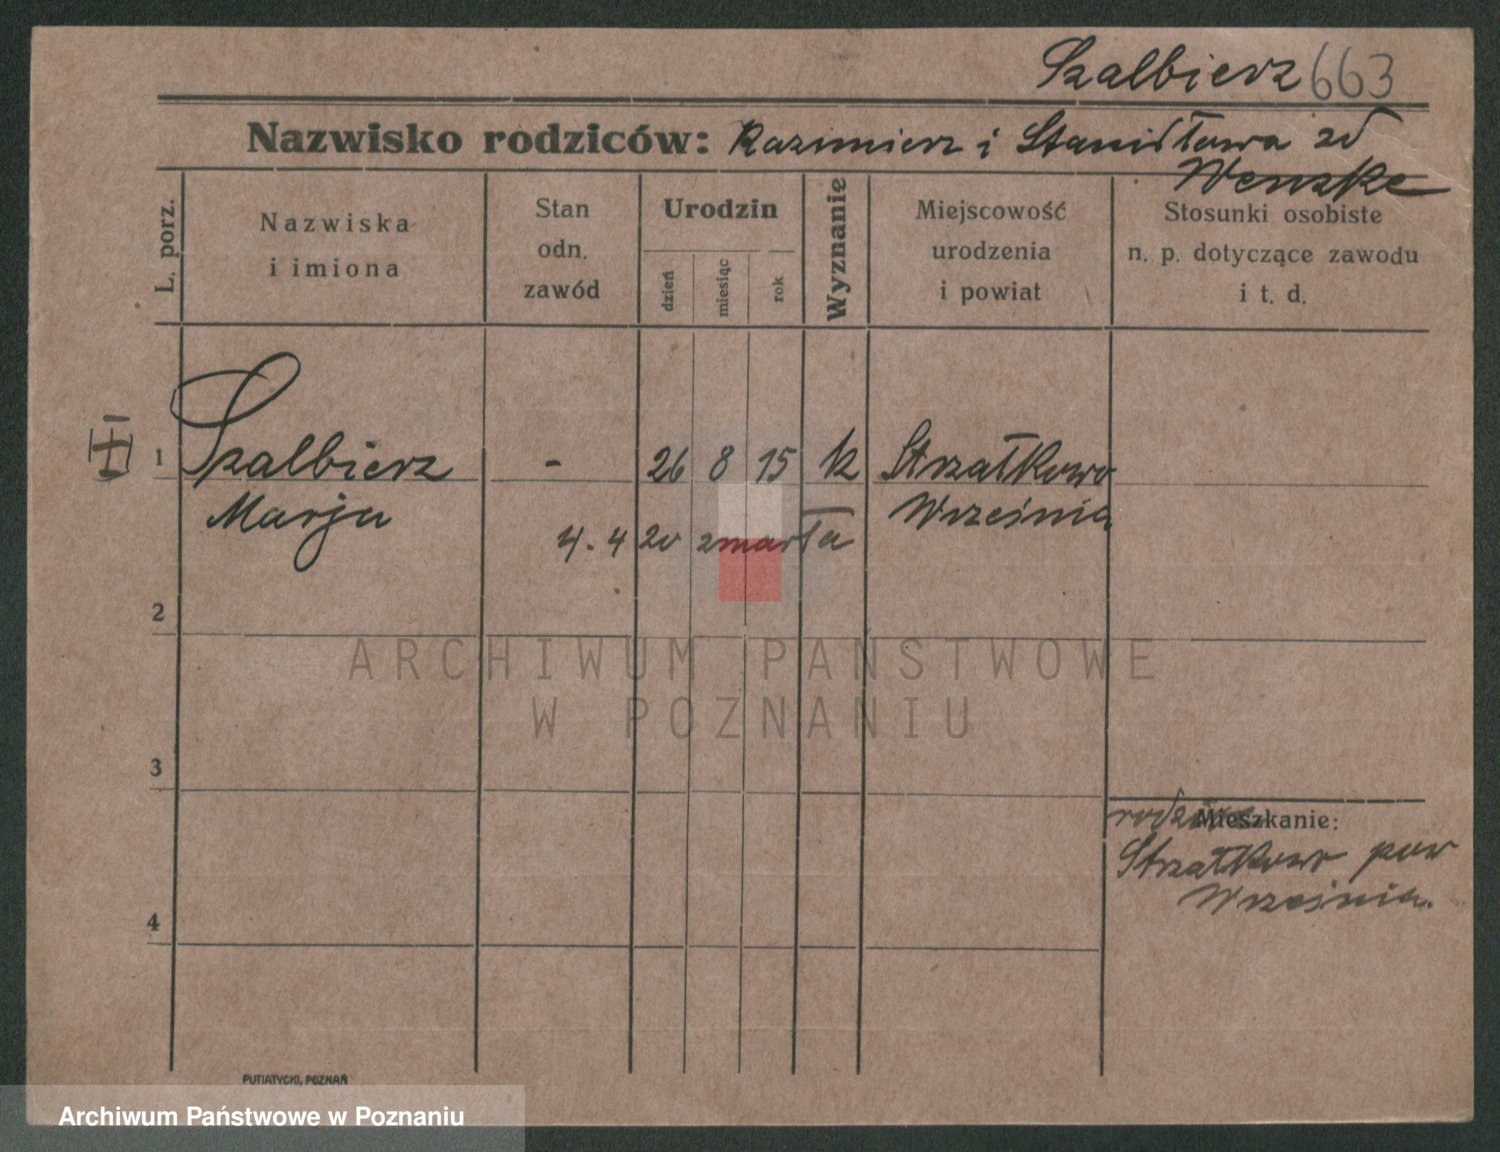 Szalbierz 663
Nazwisko rodziców: Kazimierz i Stanisława zd
Wenzke
L. porz.
Nazwiska
i imiona
Stan
odn.
zawód
Urodzin
dzień
miesiąc
rok
Wyznanie
Miejscowość
urodzenia
i powiat
Stosunki osobiste
n. p. dotyczące zawodu
i t. d.
1 Szalbierz - 26 8 15 k Strzałkowo
Marja Września
4. 4 20 zmarła
2
ARCHIWUM PAŃSTWOWE
W POZNANIU
3
Mieszkanie:
Strzałkowo pow
Września.
4
PUTIATYCKI, POZNAŃ
Archiwum Państwowe w Poznaniu